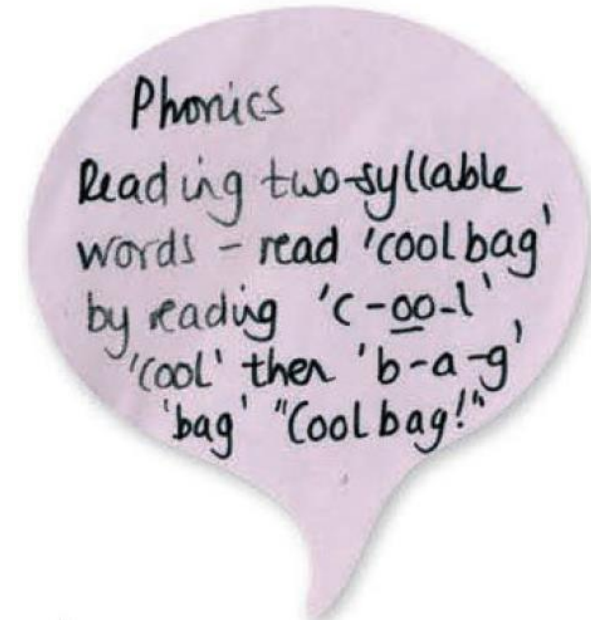 Phonics
Reading two-syllable
words - read 'coolbag'
by reading 'c-oo-l'
'cool' then 'b-a-g'
'bag' "Coolbag!"